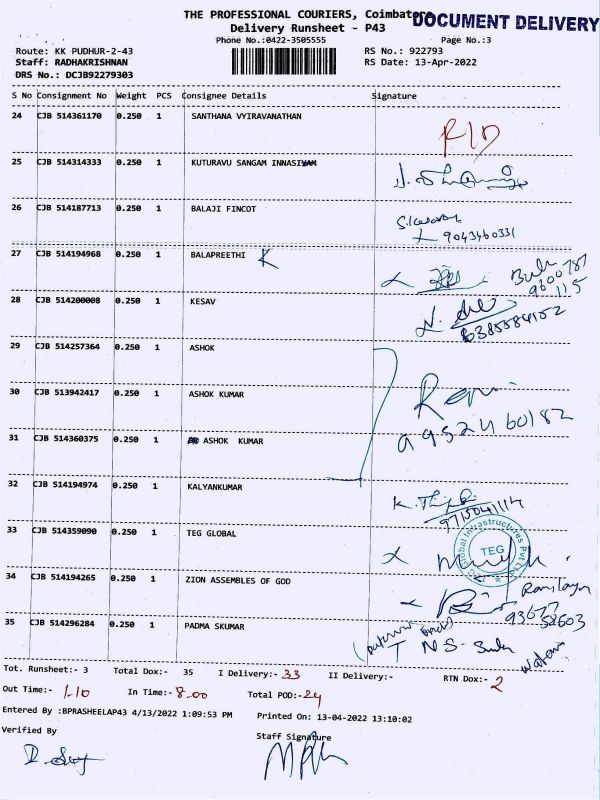 THE PROFESSIONAL COURIERS, Coimbatore
DOCUMENT DELIVERY
Delivery Runsheet - P43
Phone No.:0422-3505555 Page No.:3
Route: KK PUDHUR-2-43 RS No.: 922793
Staff: RADHAKRISHNAN RS Date: 13-Apr-2022
DRS No.: DCJB92279303
S No Consignment No Weight PCS Consignee Details Signature
24 CJB 514361170 0.250 1 SANTHANA VYIRAVANATHAN
25 CJB 514314333 0.250 1 KUTURAVU SANGAM INNASIYAM
26 CJB 514187713 0.250 1 BALAJI FINCOT
9043460331
27 CJB 514194968 0.250 1 BALAPREETHI K
9600787
115
28 CJB 514200008 0.250 1 KESAV
29 CJB 514257364 0.250 1 ASHOK
30 CJB 513942417 0.250 1 ASHOK KUMAR
9952460182
31 CJB 514360375 0.250 1 ASHOK KUMAR
32 CJB 514194974 0.250 1 KALYANKUMAR
33 CJB 514359090 0.250 1 TEG GLOBAL
Global Infrastructures Pvt Ltd
TEG
34 CJB 514194265 0.250 1 ZION ASSEMBLES OF GOD
35 CJB 514296284 0.250 1 PADMA SKUMAR
Tot. Runsheet:- 3 Total Dox:- 35 I Delivery:- 33 II Delivery:- RTN Dox:- 2
Out Time:- 1.10 In Time:- 8.00 Total POD:- 24
Entered By :BPRASHEELAP43 4/13/2022 1:09:53 PM Printed On: 13-04-2022 13:10:02
Verified By Staff Signature